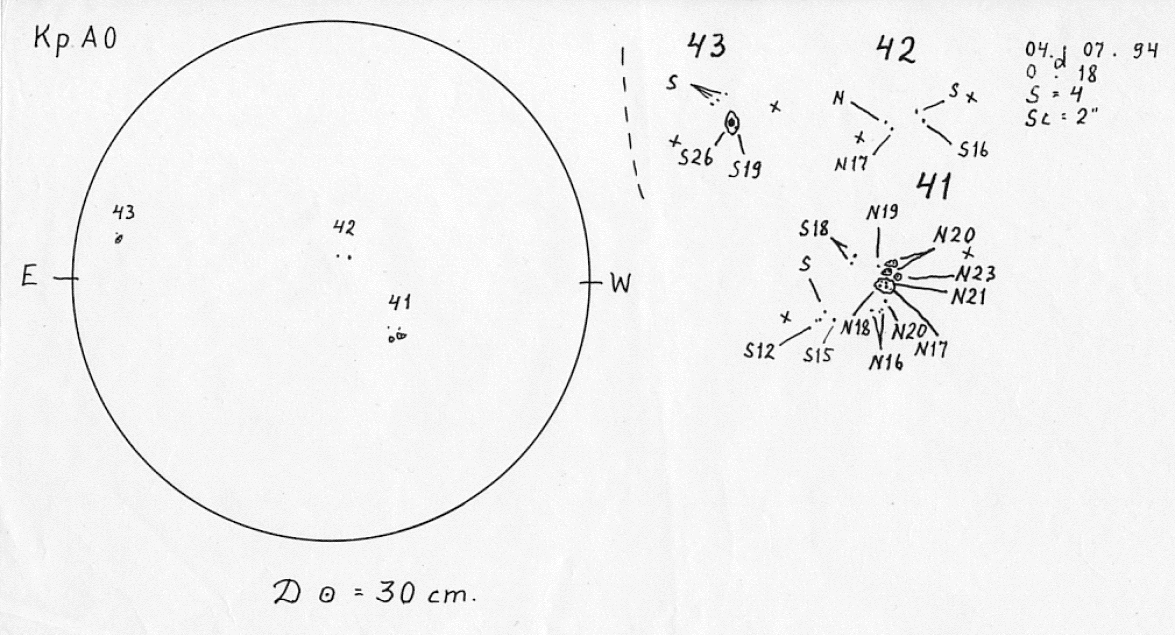 Кр АО
43
42
41
E
W
D ⊙ = 30 cm.
43
S
×
×
S26
S19
42
N
S
×
×
N17
S16
04. 07. 94
0 d . 18
S = 4
Sc = 2"
41
N19
S18
N20
×
S
N23
N21
×
N18
N20
S12
S15
N17
N16